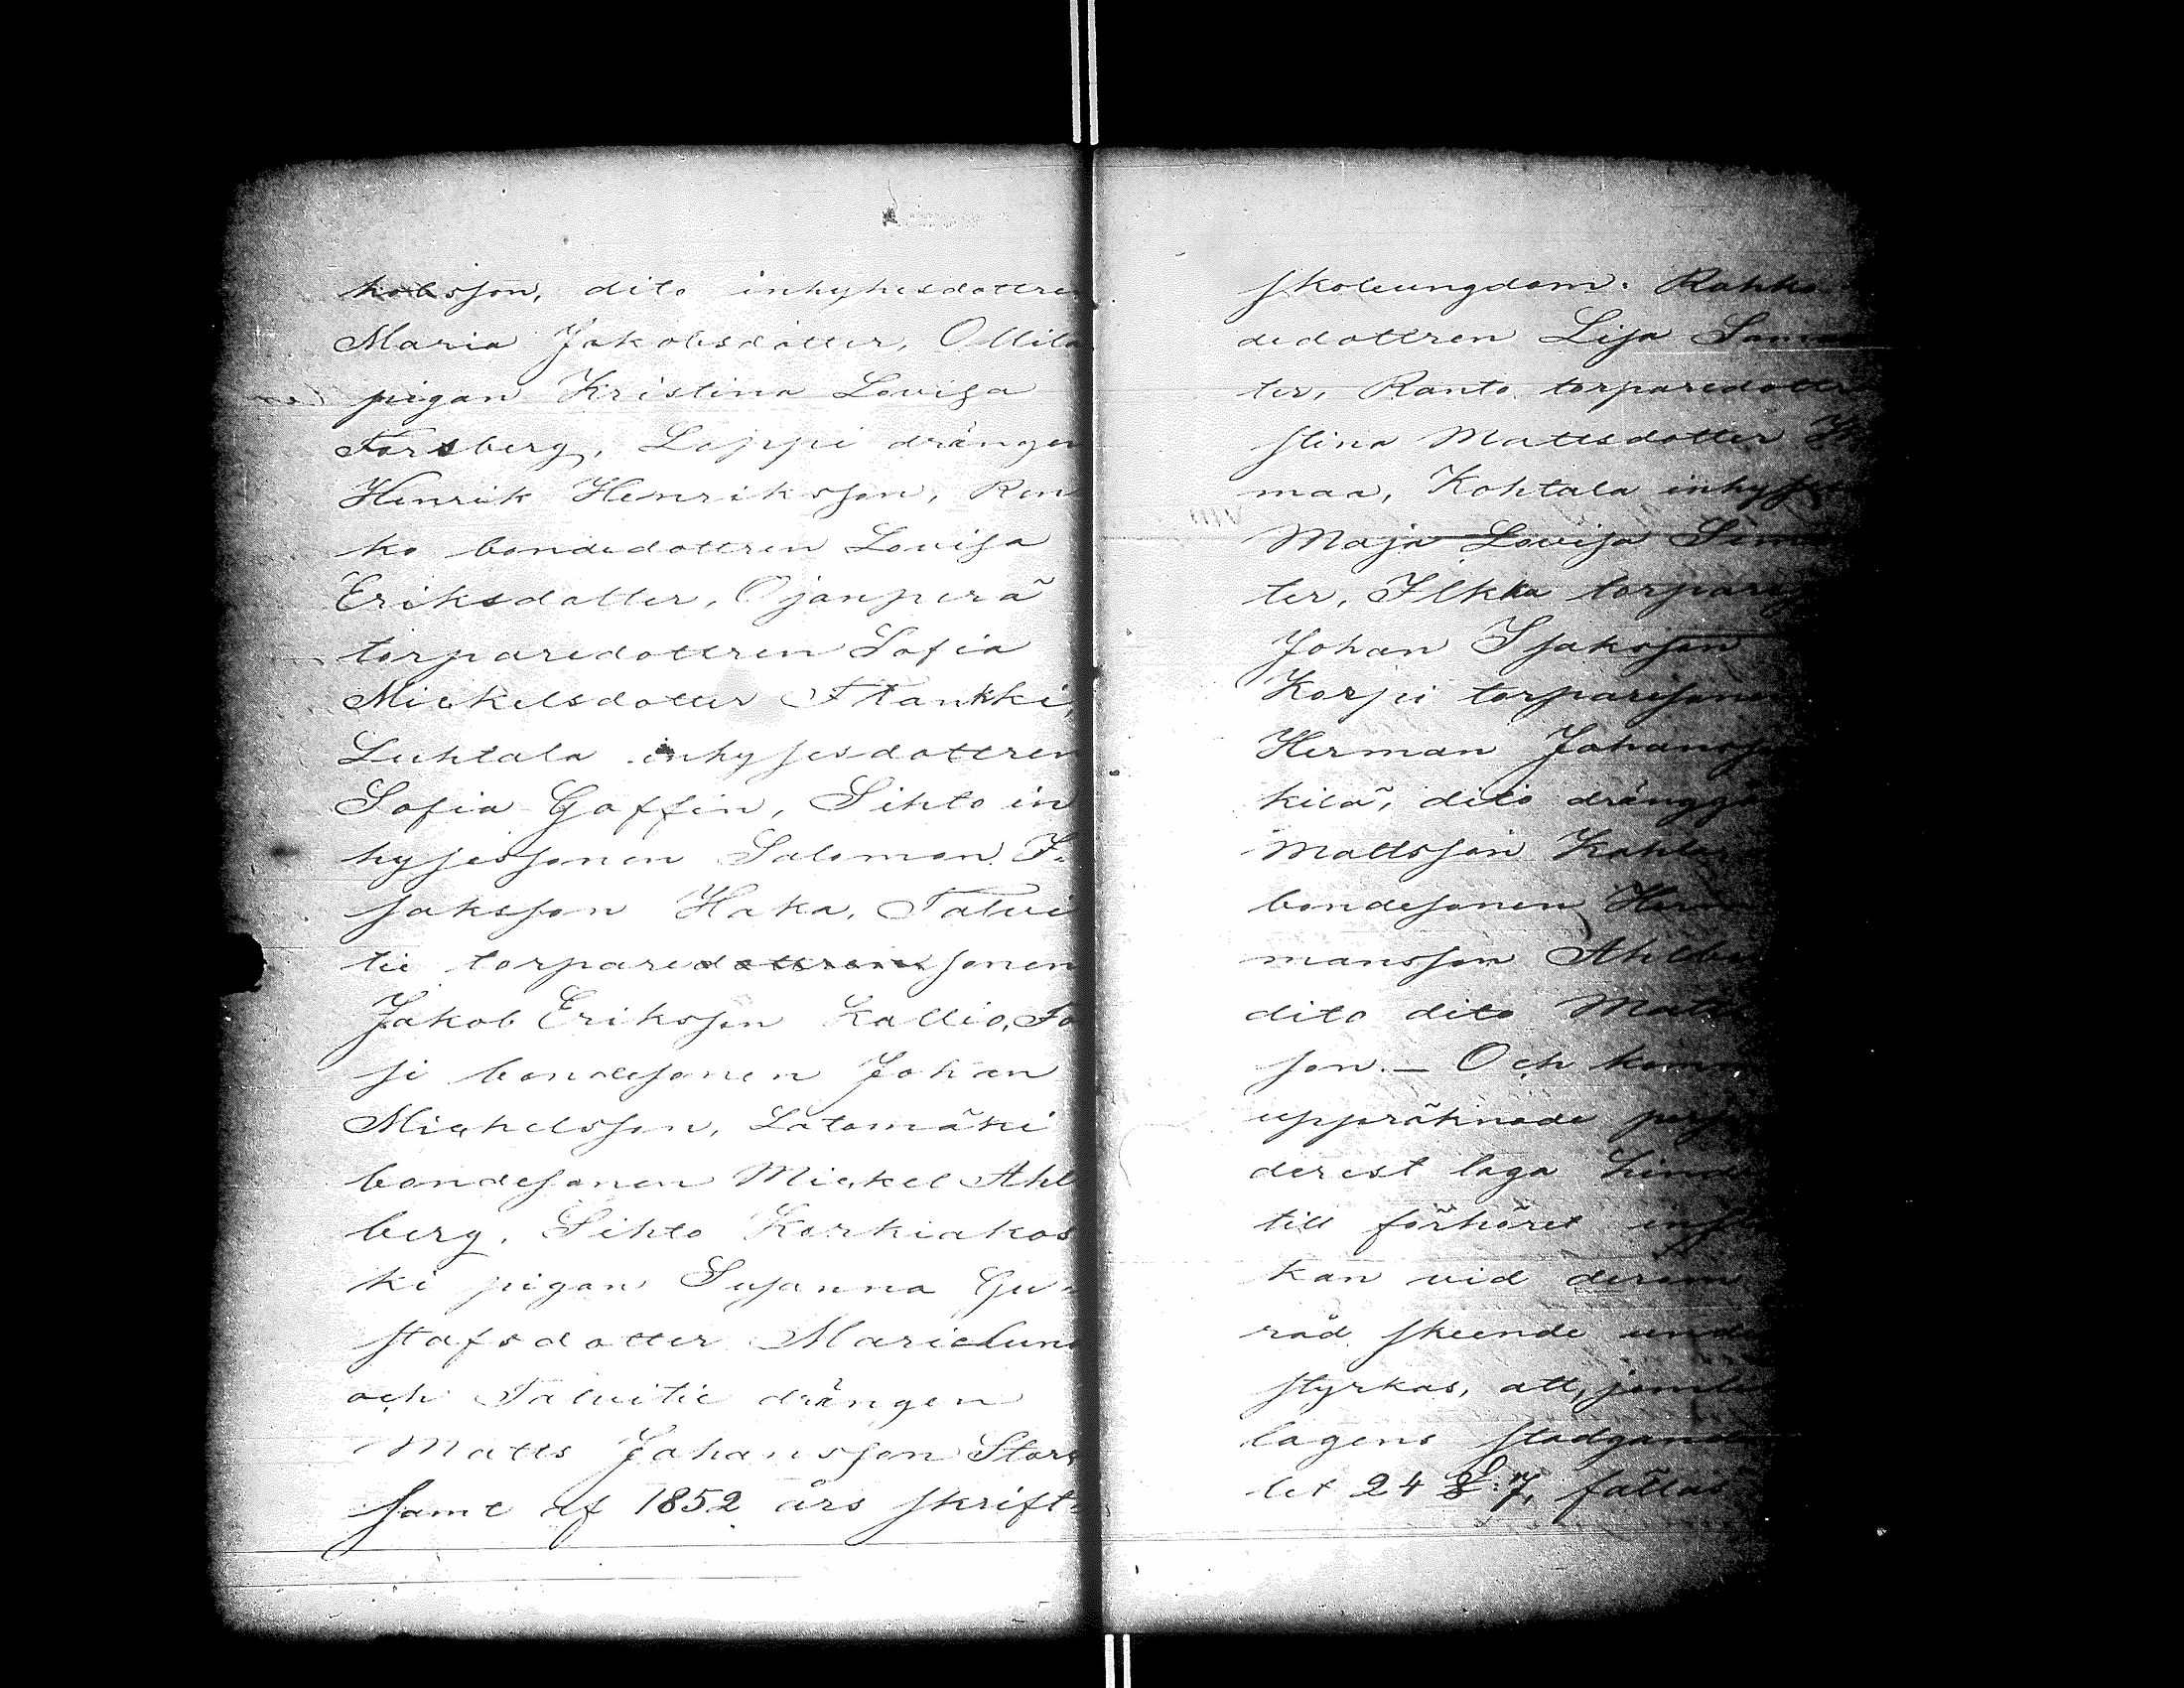 kobsson, dito inhyhesdottren
Maria Jakobsdotter, Ollila
pigan Kristina Lovisa
Forsberg, Leppi drängen
Henrik Henriksson, Ren
ko bondedottren Lovisa
Eriksdotter, Ojanperä
torparedottren Sofia
Mickelsdotter Flankki,
Luhtala inhysesdottren
Sofia Goffin, Sihto in
hysessonen Salomon I-
saksson Haka, Talvi
tie torparedottrens sonen
Jakob Eriksson Kallio, To
si bondesonen Johan
Michelsson, Latomäki
bondesonen Mickel Ahl
berg, Sihto Korkiakos
ki pigan Susanna Gu-
stafsdotter Marielund
och Talvitie drängen
Matts Johansson Stor
samt af 1852 års skrift-
skoleungdom: Rahko
dedottren Lisa Sam
ter, Ranto torparedottre
stina Mattsdotter
maa, Kohtala inhyses
Maja Lovisa Simo
ter, Ilkka torpare
Johan Isaksson
Korpi torparesonen
Herman Johansso
kilä, dito drängg
Mattsson Kohta
bondesonen Her
mansson Ahlbe
dito dito Matts
son. — Och komm
uppräknade pers
derest laga hind
till förhöret inst
kan vid derom
råd skeende unde
styrkas, att, jemli
lagens stadgand
let 24 §: 7, fällas